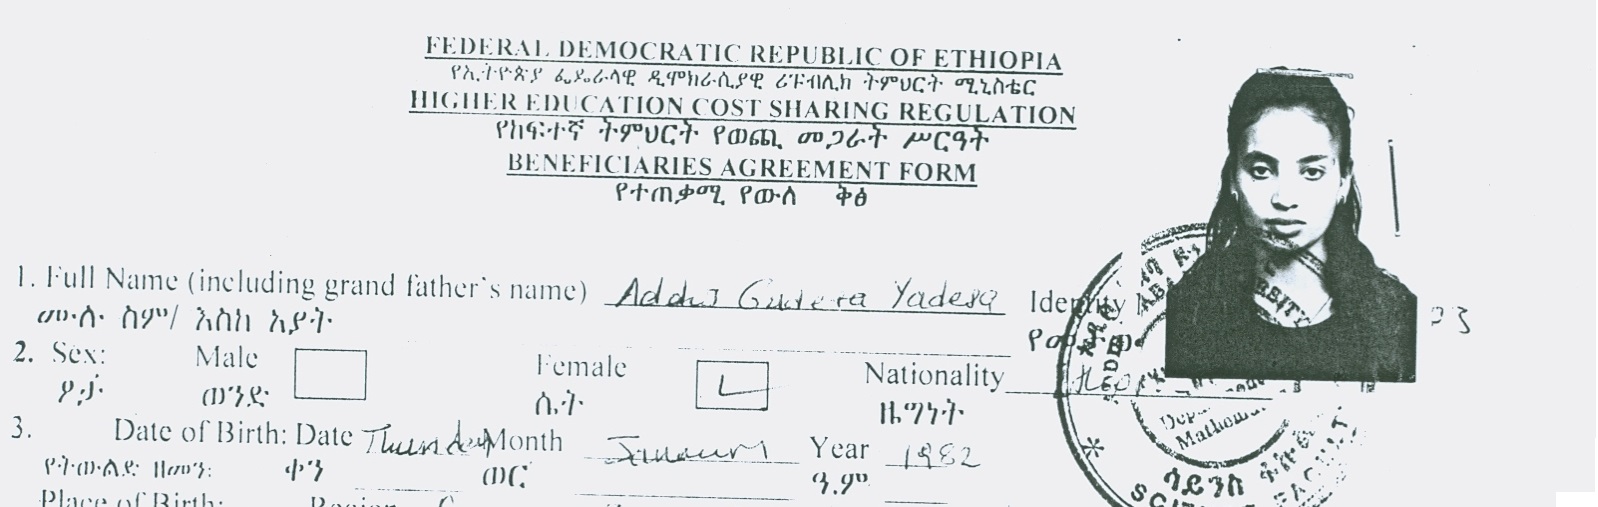 FEDERAL DEMOCRATIC REPUBLIC OF ETHIOPIA
የኢትዮጵያ ፌዴራላዊ ዲሞክራሲያዊ ሪፑብሊክ ትምህርት ሚኒስቴር
HIGHER EDUCATION COST SHARING REGULATION
የከፍተኛ ትምህርት የወጪ መጋራት ሥርዓት
BENEFICIARIES AGREEMENT FORM
የተጠቃሚ የውለ ቅፅ
1. Full Name (including grand father's name) Addis Gudeta Yadesa Identity
ሙሉ ስም/ እስከ አያት
2. Sex: Male Female Nationality
ፆታ ወንድ ሴት ዜግነት
3. Date of Birth: Date Thursday Month January Year 1982
የትውልድ ዘመን: ቀን ወር ዓ.ም
Place of Birth: Region
Mathem
ሳይንስ